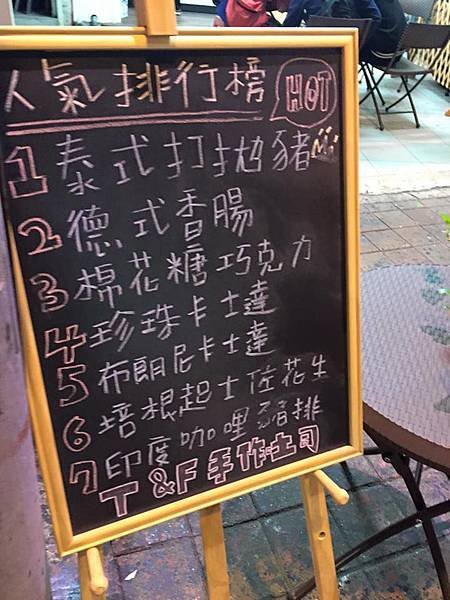 人氣排行榜 HOT
1 泰式打拋豬
2 德式香腸
3 棉花糖巧克力
4 珍珠卡士達
5 布朗尼卡士達
6 培根起士佐花生
7 印度咖哩豬排
T&F手作土司